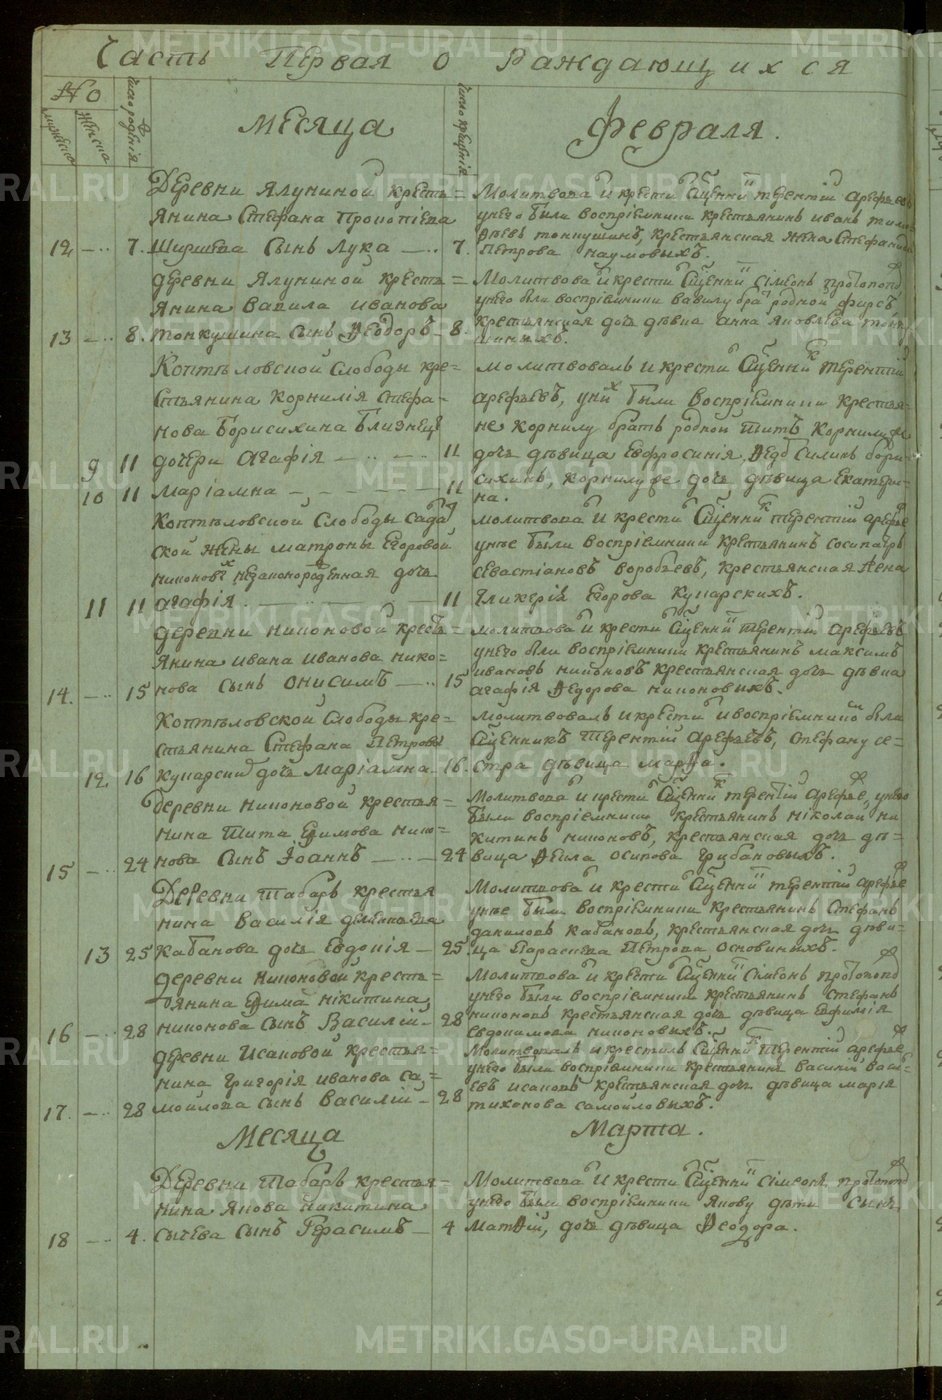 Часть Первая о Раждающихся
№
мужеска
женска
число рождения
Месяца
число крещения
Февраля.
Деревни Ялуниной кресть=
янина Стефана Прокопьева
12 — 7. Ширшева Сынъ Лука — 7.
Молитвова и крести Сщенн терентій арефьевъ
унего были воспріемники крестьянинъ иванъ
тонкушинъ, крестьянская жена Стефанида
Петрова наумовыхъ.
деревни Ялуниной кресть=
янина Вавила иванова
13 — 8. тонкушина сынъ Ѳеодоръ 8.
Молитвова и крести Сщенн Сімеонъ протопоп
унего были воспріемники вавилу бра родной фирсъ
крестьянская дочь дѣвка анна яковлева тонку
шиныхъ.
Коптѣловской Слободы кре=
стьянина Корнилія стефа=
нова Борисихина Близнецы
9 11 дочери Агафія — 11
10 11 Маріамна — 11
молитвовалъ и крести Сщенник терентій
арефьевъ, уних были воспріемники крестьяни=
не Корнилу братъ родной Титъ, Корнилу же
дочь дѣвица Евфросинія, Ѳедо Силинъ бори=
сихинъ, корнилу же дочь дѣвица Екатери=
на.
Коптѣловской Слободы
ской жены матроны Егоровой
никоновых незаконорожденная дочь
11 11 агафія. — 11
молитвова и крести Сщенник терентій арефье
унее были воспріемники крестьянинъ сосипатръ
севастіановъ воробьевъ, крестьянская жена
Гликерія Егорова Кукарскихъ.
деревни никоновой кресть=
янина ивана иванова нико=
14. — 15 нова сынъ Онисимъ — 15
молитвова и крести Сщенн терентій арефьевъ
унего были воспріемники крестьянинъ максимъ
ивановъ никоновъ крестьянская дочь дѣвка
агафія Ѳедорова никоновыхъ.
Коптѣловской Слободы кре=
стьянина Стефана Петрова
12. 16 кукарских дочь Маріамна 16.
молитвовалъ и крести и воспріемником были
Сщенникъ Терентій Арефьевъ, Стефану се=
стра дѣвица Марѳа.
деревни никоновой крестья=
нина Тита Ефимова нико=
15 — 24 нова Сынъ Іоаннъ — 24
Молитвова и крести Сщенник терентій Арефье, унего
были воспріемники крестьянинъ Николай ни
китинъ никоновъ, крестьянская дочь дѣ=
вица Ѳекла осипова Грибановыхъ.
Деревни Табаръ крестья
нина Василія
13 25 Кабанова дочь Евдокія — 25
Молитвова и крести Сщенн терентій арефье
унее были воспріемники крестьянинъ Стефанъ
даниловъ Кабановъ, крестьянская дочь дѣви=
ца Параскева Петрова Основиныхъ.
деревни никоновой кресть=
янина Ефима никитина
16 — 28 никонова сынъ Василій 28
Молитвова и крести Сщенн Сімеонъ протопоп
унего были воспріемники крестьянинъ стефанъ
никоновъ крестьянская дочь дѣвица Евфимія
евдокимова никоновыхъ.
деревни Исаковой крестья=
нина Григорія иванова са=
17. — 28 мойлова сынъ Василій 28
Молитвовалъ и крестилъ Сщенн терентій арефье
унего были воспріемники крестьянинъ василій васи=
евъ исаковъ крестьянская дочь дѣвица марія
тихонова самойловыхъ.
Месяца Марта.
Деревни Табаръ крестья=
нина Якова Никитина
18 — 4. сычева Сынъ Герасимъ — 4
Молитвова и крести Сщенн Сімеонъ протопоп
унего были воспріемники Якову дѣти Сынъ
Матѳій, дочь дѣвица Ѳеодора.
METRIKI.GASO-URAL.RU